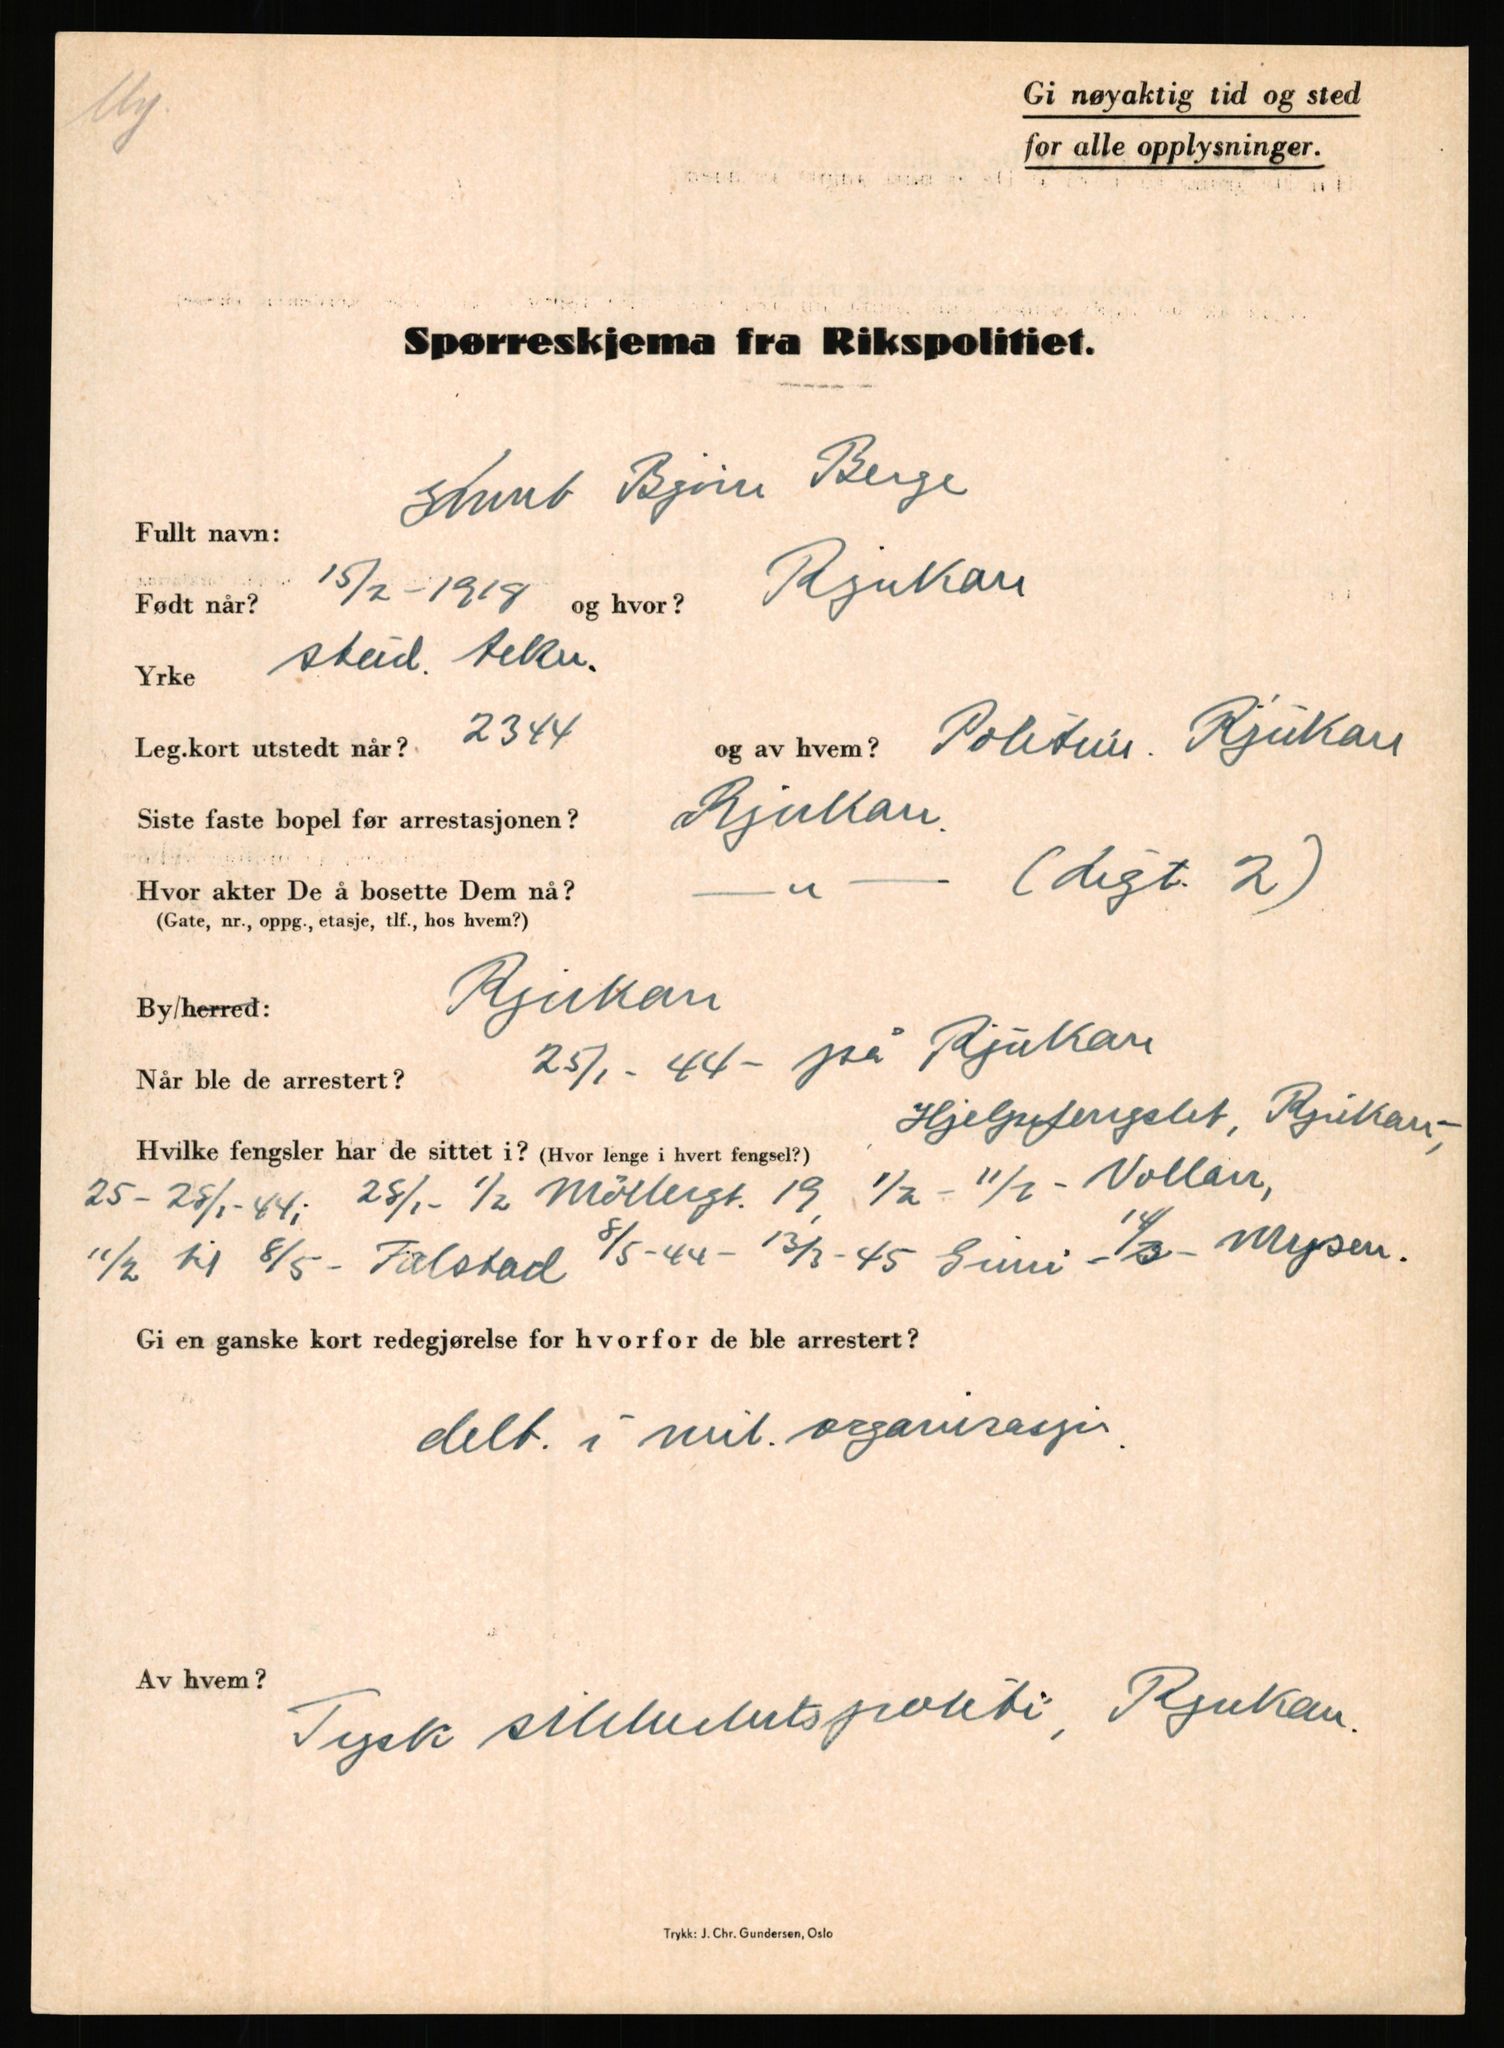 My.
Gi nøyaktig tid og sted
for alle opplysninger.
Spørreskjema fra Rikspolitiet.
Fullt navn: Knut Bjørn Berge
Født når? 15/2 - 1918 og hvor? Rjukan
Yrke stud. tekn.
Leg.kort utstedt når? 2344 og av hvem? Politiin. Rjukan
Siste faste bopel før arrestasjonen? Rjukan.
Hvor akter De å bosette Dem nå? — " — (digt. 2)
(Gate, nr., oppg., etasje, tlf., hos hvem?)
By/herred: Rjukan
Når ble de arrestert? 25/1 - 44 - på Rjukan
Hvilke fengsler har de sittet i? (Hvor lenge i hvert fengsel?) Hjelpefengslet, Rjukan,
25 - 28/1 - 44; 28/1 - 1/2 Möllergt. 19, 1/2 - 11/2 - Vollan,
11/2 til 8/5 - Falstad 8/5 - 44 - 13/3 - 45 Grini - 14/3 - Mysen.
Gi en ganske kort redegjørelse for hvorfor de ble arrestert?
delt. i mil. organisasjon.
Av hvem?
Tysk sikkerhetspoliti, Rjukan.
Trykk: J. Chr. Gundersen, Oslo